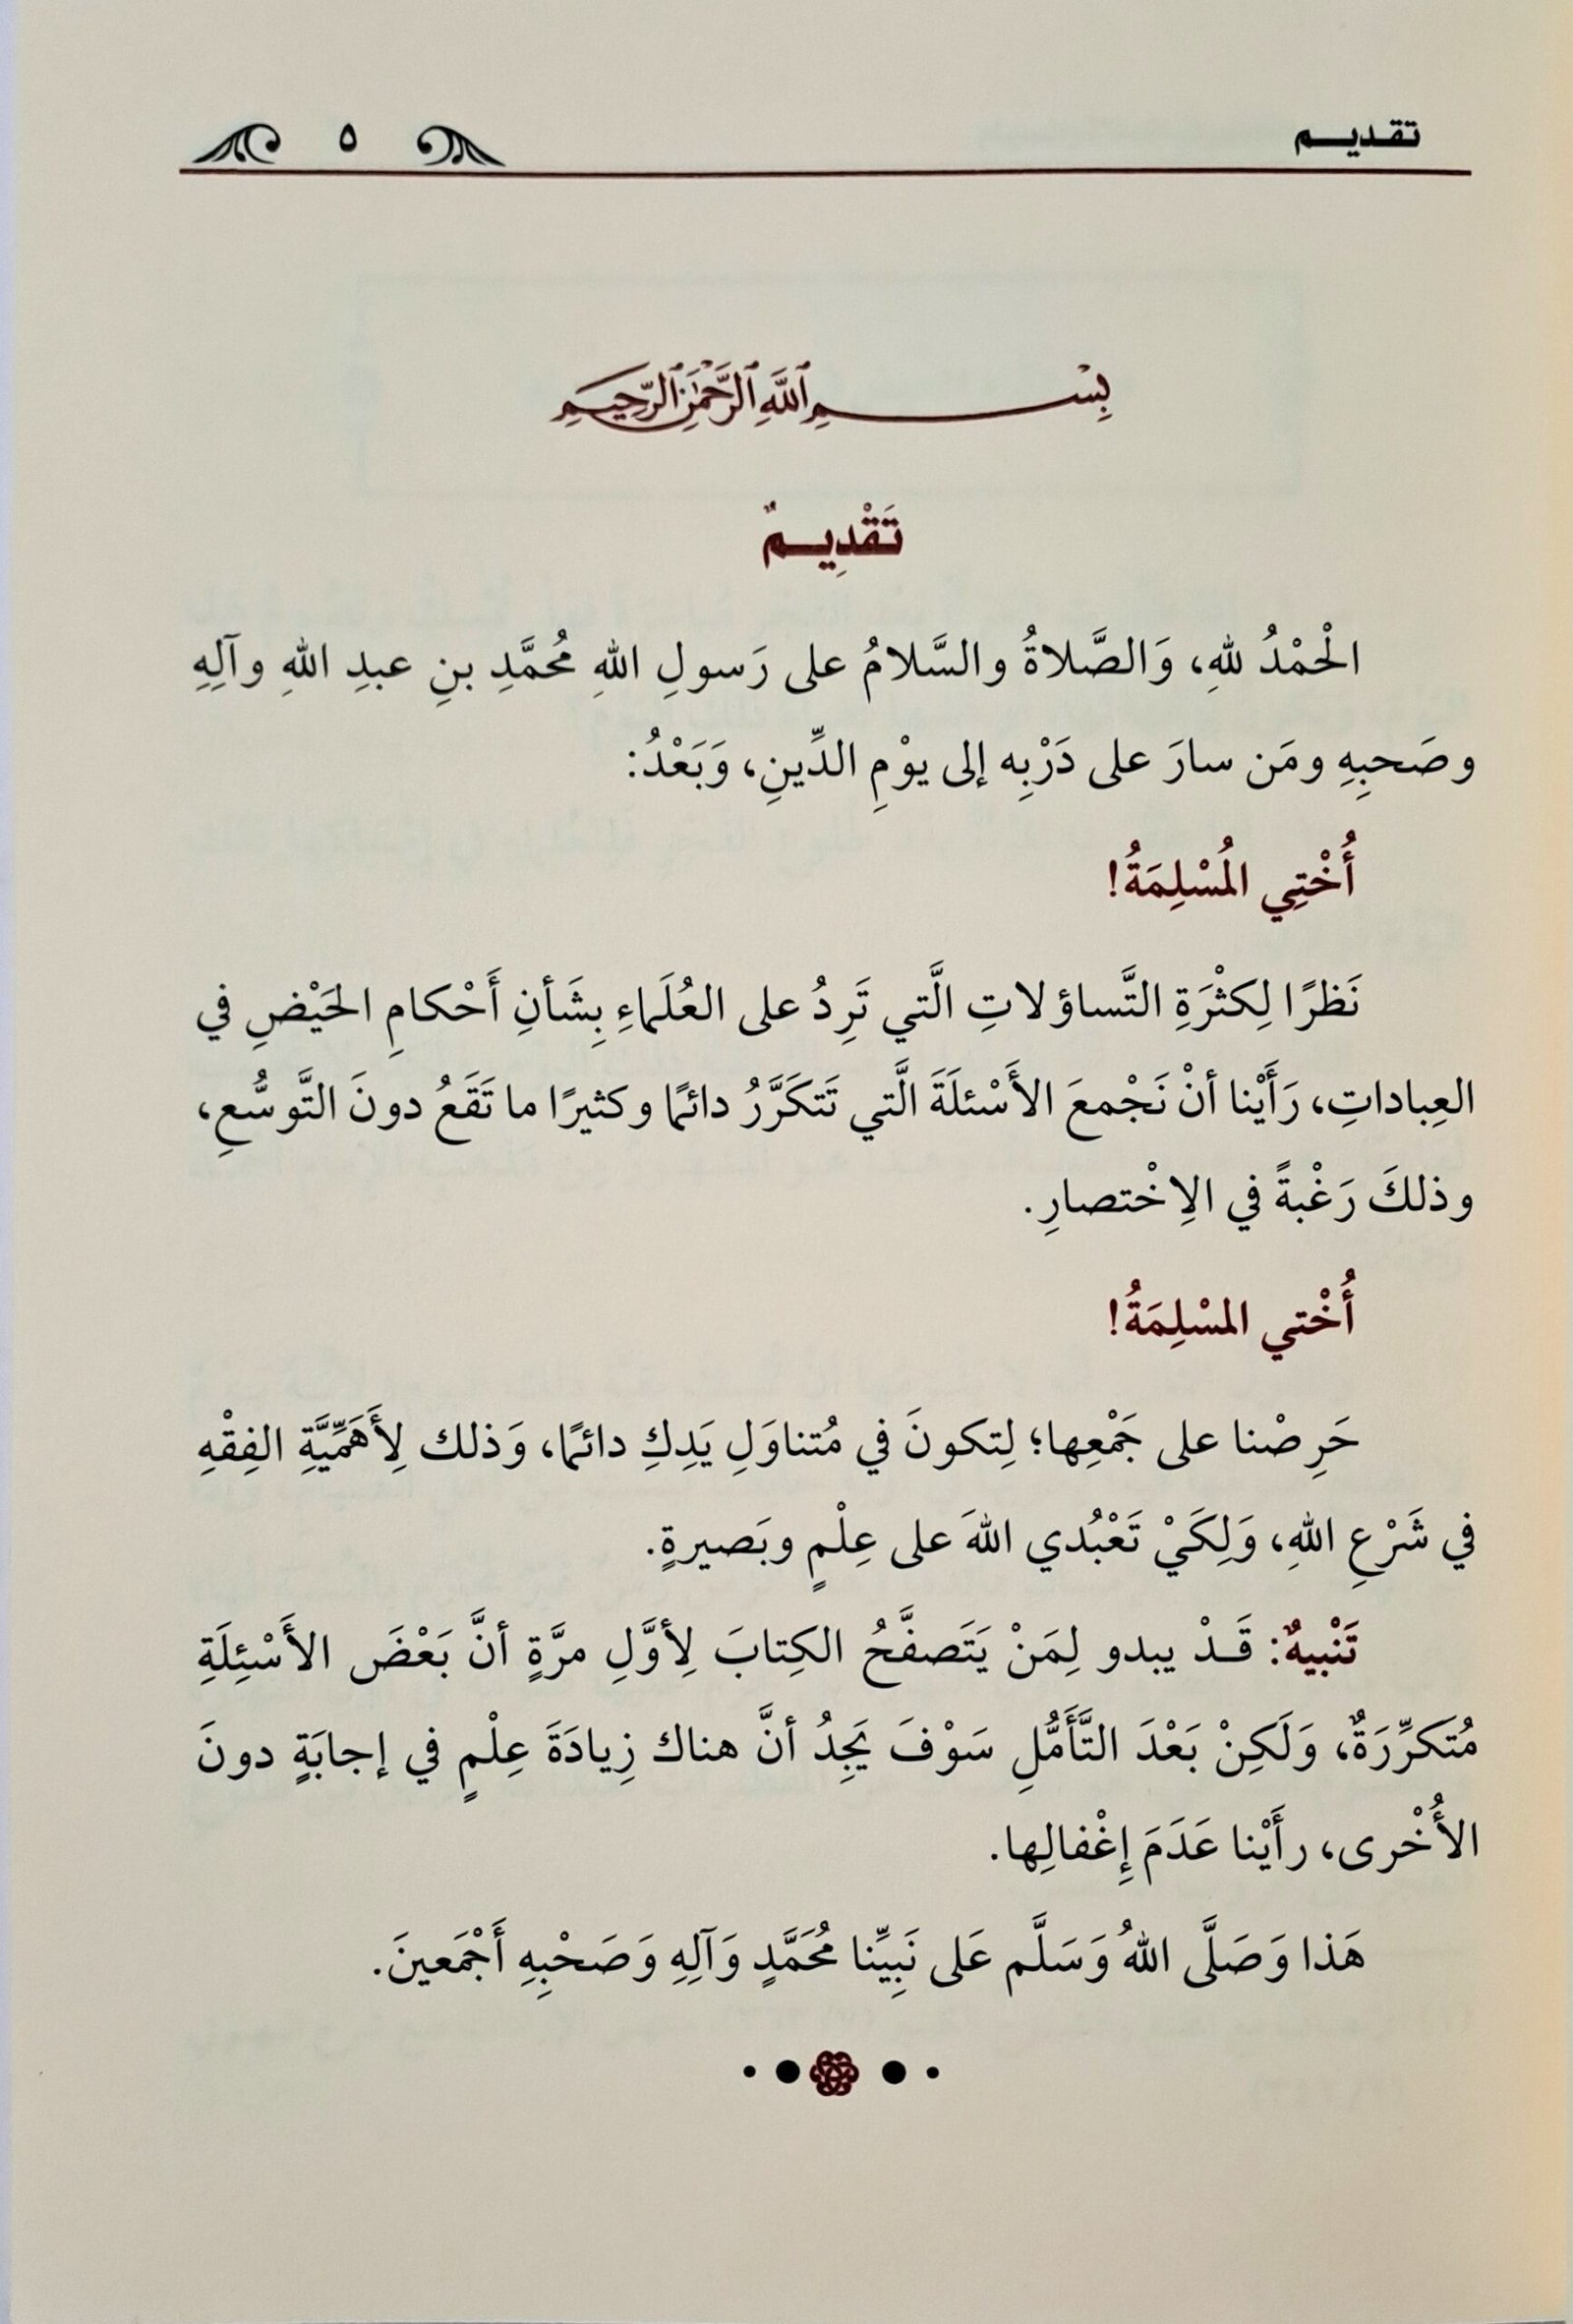 تقديم ٥
بِسْمِ ٱللَّهِ ٱلرَّحْمَٰنِ ٱلرَّحِيمِ
تَقْدِيمٌ
الْحَمْدُ للهِ، وَالصَّلاةُ والسَّلامُ على رَسولِ اللهِ مُحمَّدِ بنِ عبدِ اللهِ وآلِهِ
وصَحبِهِ ومَن سارَ على دَرْبِه إلى يوْمِ الدِّينِ، وَبَعْدُ:
أُخْتِي المُسْلِمَةُ!
نَظرًا لِكثْرَةِ التَّساؤلاتِ الَّتي تَرِدُ على العُلَماءِ بِشَأنِ أَحْكامِ الحَيْضِ في
العِباداتِ، رَأَيْنا أنْ نَجْمعَ الأَسْئلَةَ الَّتي تَتكَرَّرُ دائمًا وكثيرًا ما تَقَعُ دونَ التَّوسُّعِ،
وذلكَ رَغْبةً في الِاخْتصارِ.
أُخْتي المسْلِمَةُ!
حَرِصْنا على جَمْعِها؛ لِتكونَ في مُتناوَلِ يَدِكِ دائمًا، وَذلك لِأَهَمِّيَّةِ الفِقْهِ
في شَرْعِ اللهِ، وَلِكَيْ تَعْبُدي اللهَ على عِلْمٍ وبَصيرةٍ.
تَنْبيهٌ: قَدْ يبدو لِمَنْ يَتَصفَّحُ الكِتابَ لِأوَّلِ مرَّةٍ أنَّ بَعْضَ الأَسْئِلَةِ
مُتَكرِّرَةٌ، وَلَكِنْ بَعْدَ التَّأَمُّلِ سَوْفَ يَجِدُ أنَّ هناك زِيادَةَ عِلْمٍ في إجابَةٍ دونَ
الأُخْرى، رأَيْنا عَدَمَ إِغْفالِها.
هَذا وَصَلَّى اللهُ وَسَلَّم عَلى نَبِيِّنا مُحَمَّدٍ وَآلِهِ وَصَحْبِهِ أَجْمَعينَ.